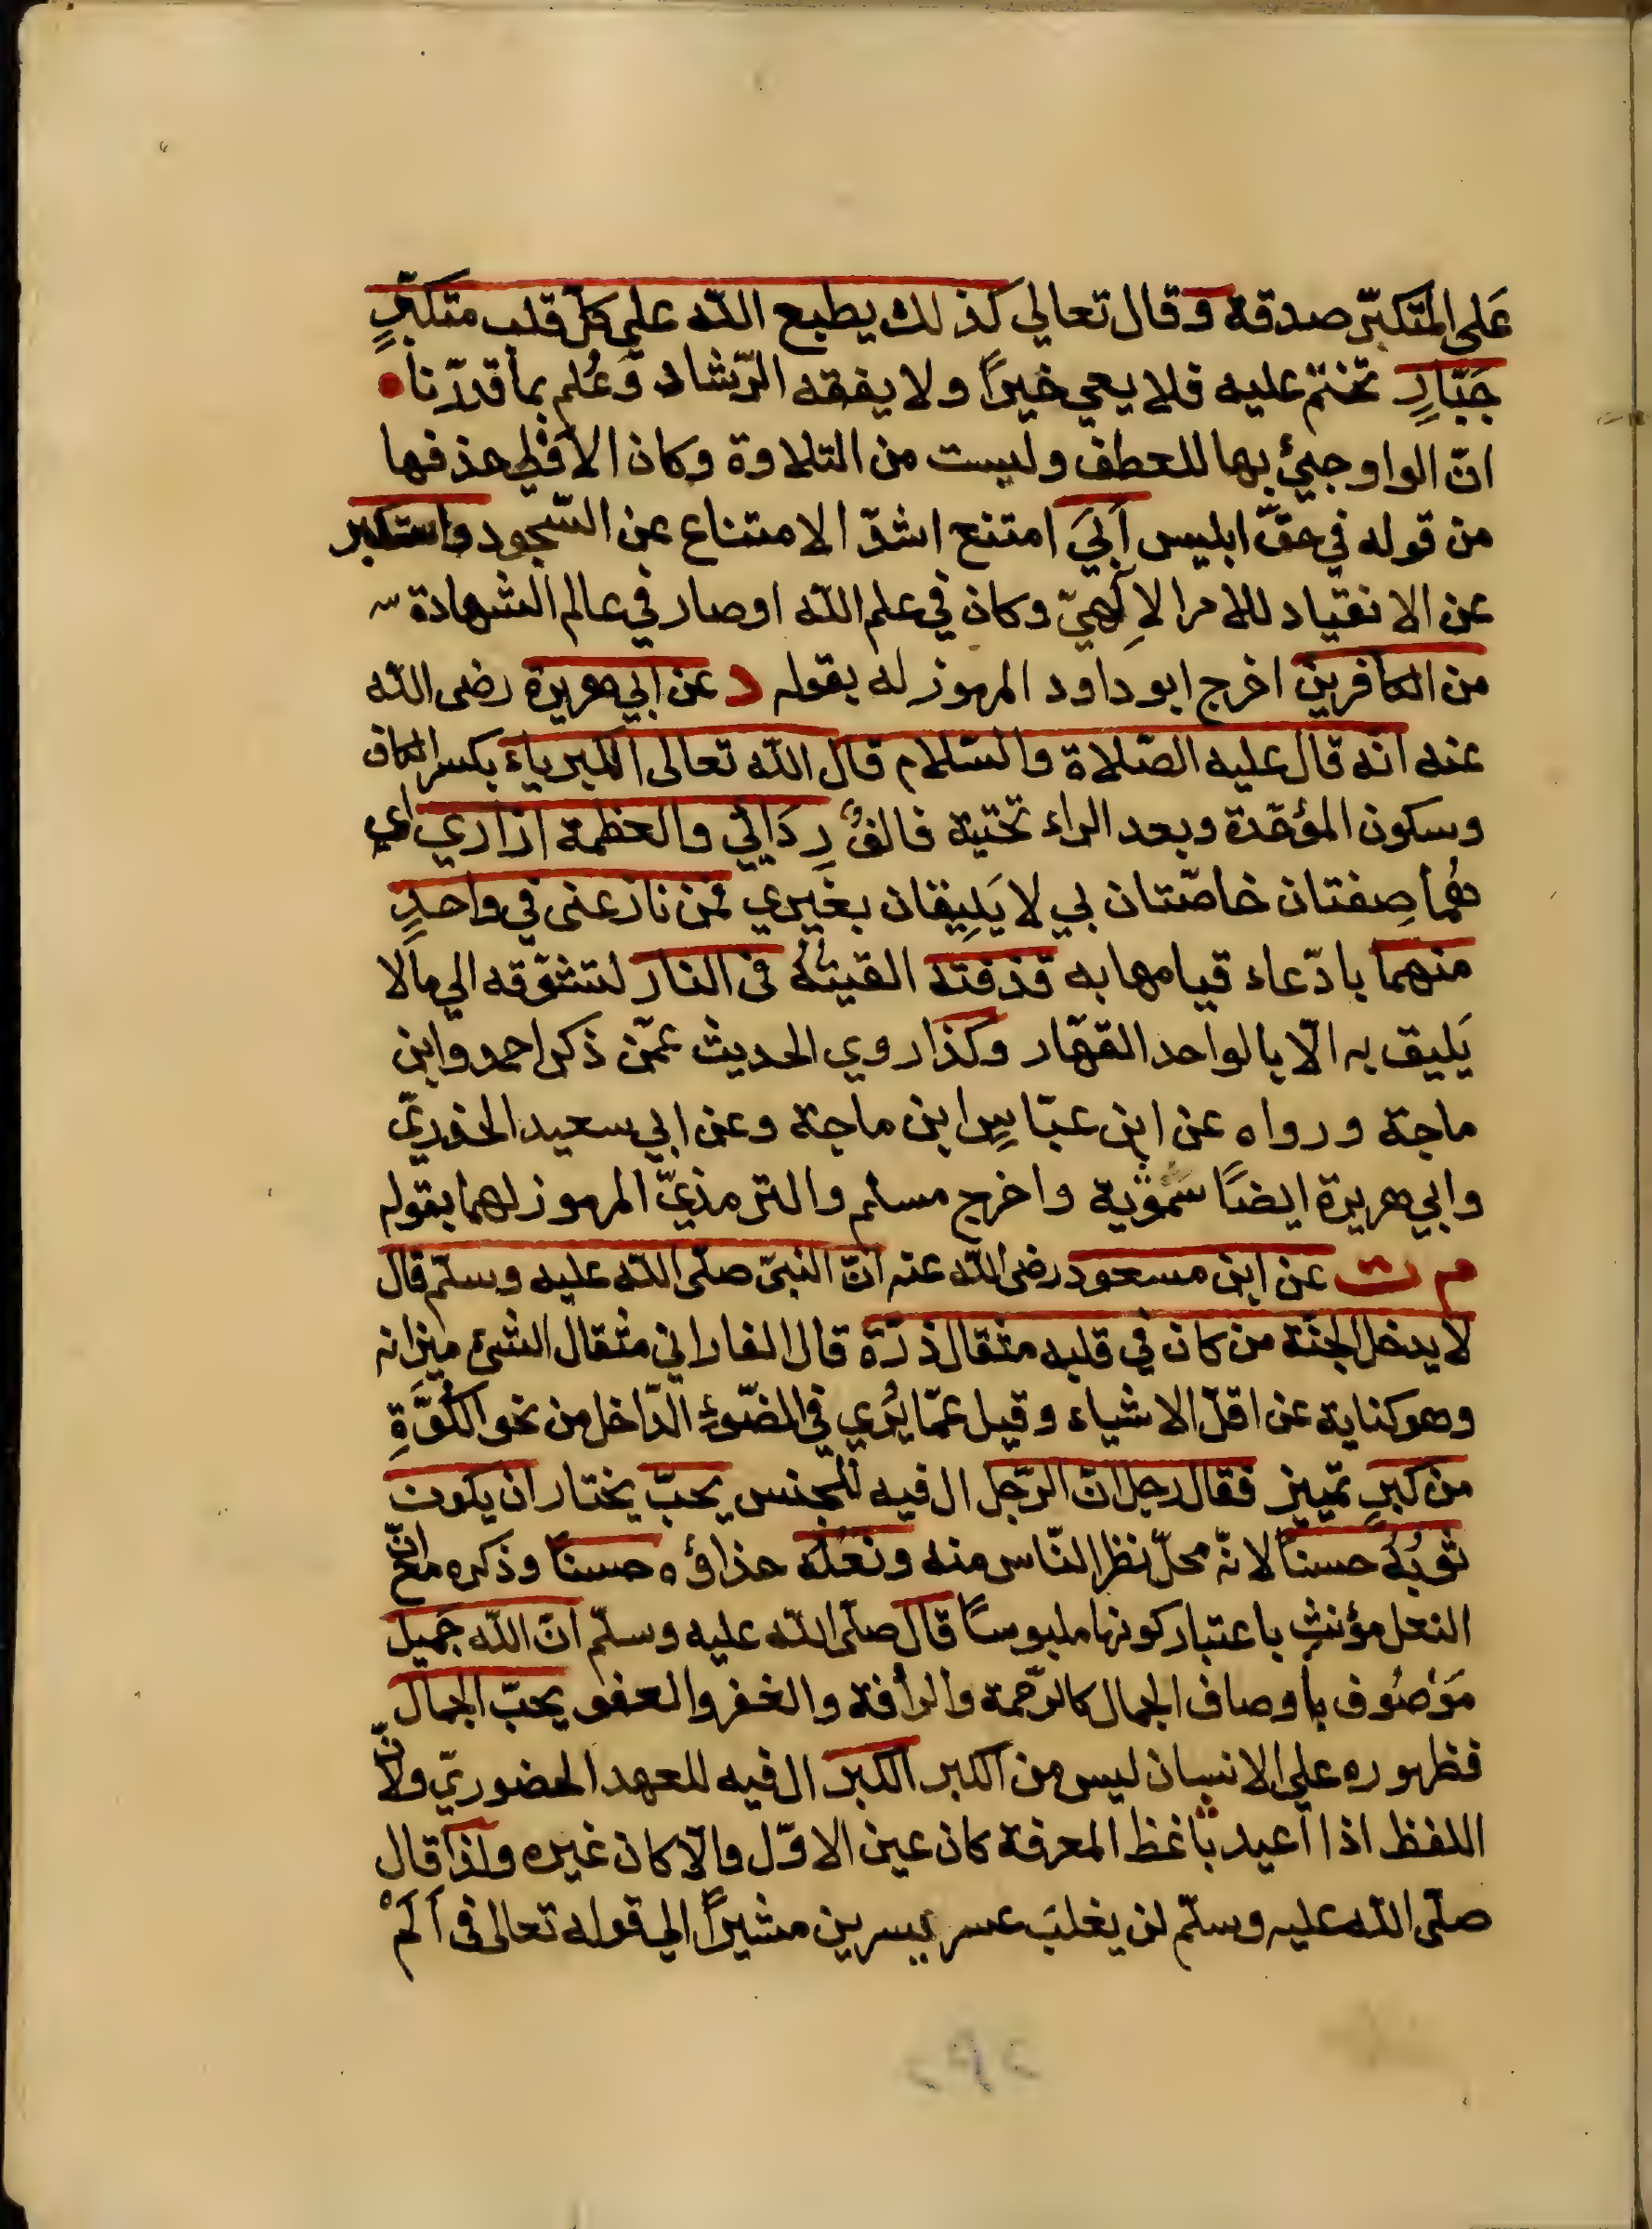 عَلى المتَكبّر صدقة وقال تعالي كَذلك يطبع اللّه على كلّ قلب متكبّرٍ
جَبّارٍ تختم عليه فلا يعي خيرًا ولا يفقه الرّشاد وعُلم بما قدرّنا
انّ الواو جيئ بها للعطف وليست من التلاوة وكان الاَوْلي حذفها
من قوله في حقّ ابليس اَبيَ امتنع اشدّ الامتناع عن السّجود واستكبر
عن الانقياد للامر الاِلٓهيّ وكان في علم اللّه اوصار في عالم الشهادة
من الكافرين اخرج ابو داود المرموز له بقوله د عن ابي هريرة رضى اللّه
عنه انّه قال عليه الصّلاة والسّلام قال اللّه تعالى الكبرياء بكسر الكاف
وسكون المؤحّدة وبعد الراء تحتية فالفٌ رِدَائي والعظمة ازاري اي
هُما صِفتان خاصّتان بي لا يَلِيقان بغيري فمَن نازعنى في واحدٍ
منهما بادّعاء قيامها به قذفته القيتُهُ فى النار لتشوّقه الي ما لا
يَليق به الّا بالواحد القهّار وكذا روي الحديث عمّن ذكر احمد وابن
ماجة ورواه عن ابن عبّاسٍ ابن ماجة وعن ابي سعيد الخدريّ
وابي هريرة ايضًا سَمُّوية واخرج مسلم والترمذيّ المرموز لهما بقوله
م ت عن ابن مسعود رضى اللّه عنه انّ النبىّ صلّى اللّه عليه وسلّم قال
لا يدخل الجنّة من كان في قلبه مثقال ذرّة قال الفارابي مثقال الشئ ميزانه
وهو كناية عن اقلّ الاشياء وقيل عمّا يُري في الضّوءِ الدّاخل من نحو الكُوَّةِ
من كبرٍ تمييز فقال رجل انّ الرّجل ال فيه للجنس يحبّ يختار ان يكون
ثوبُهُ حسنًا لانّه محلّ نظر النّاس منه ونعلُه حذاؤه حسنًا وذكره مع انّ
النعل مؤنث باعتبار كونها ملبوسًا قال صلّى اللّه عليه وسلّم انّ اللّه جَميل
مَوْصُوف باوصاف الجمال كالرّحمة والرأفة والغفر والعفو يحبّ الجمال
فظهوره على الانسان ليس من الكبر الكبر ال فيه للعهد الحضوريّ ولانّ
اللفظ اذا اعيد بلفظ المعرفة كان عين الاوّل والّا كان غيره ولذا قال
صلّى اللّه عليه وسلّم لن يغلبَ عسر يسرين مشيرًا الي قوله تعالى فى اَلَمْ